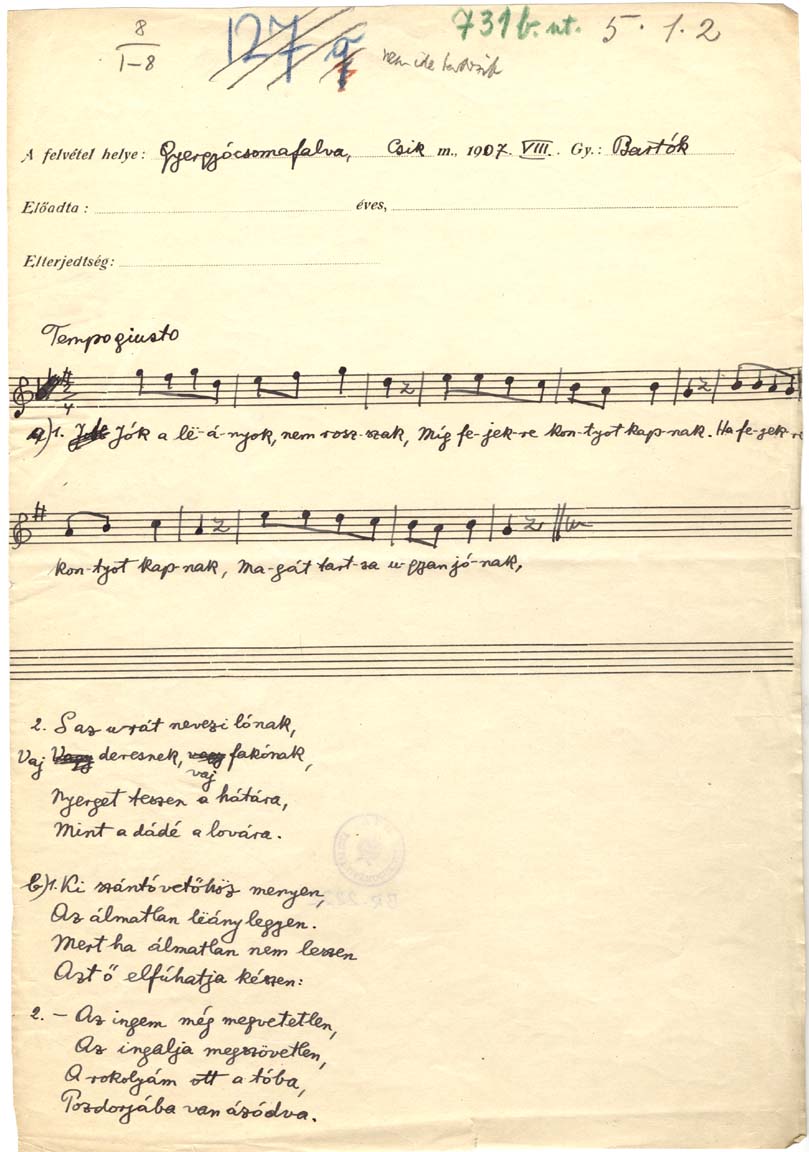 8
1-8
127 g
731 b. nt.
5.1.2
nem ide tartozik
A felvétel helye: Gyergyócsomafalva, Csik m., 1907. VIII. Gy.: Bartók
Előadta: éves,
Elterjedtség:
Tempo giusto
2
4
a) 1. Jók a lë-á-nyok, nem rosz-szak, Míg fe-jek-re kon-tyot kap-nak. Ha fe-jek-re
kon-tyot kap-nak, Ma-gát tart-sa u-gyan jó-nak,
2. S az u-rát nevezi lónak,
Vaj Vagy deresnek, vagy fakónak,
vaj
Nyerget teszen a hátára,
Mint a dádé a lovára.
b) 1. Ki szántóvetőhöz menyen,
Az álmatlan lëány leggyen.
Mert ha álmatlan nem leszen
Azt ő elfúhatja készen:
2. – Az ingem még megvetetlen,
Az ingalja megszövetlen,
A rokolyám ott a tóba,
Pozdorjába van ázódva.